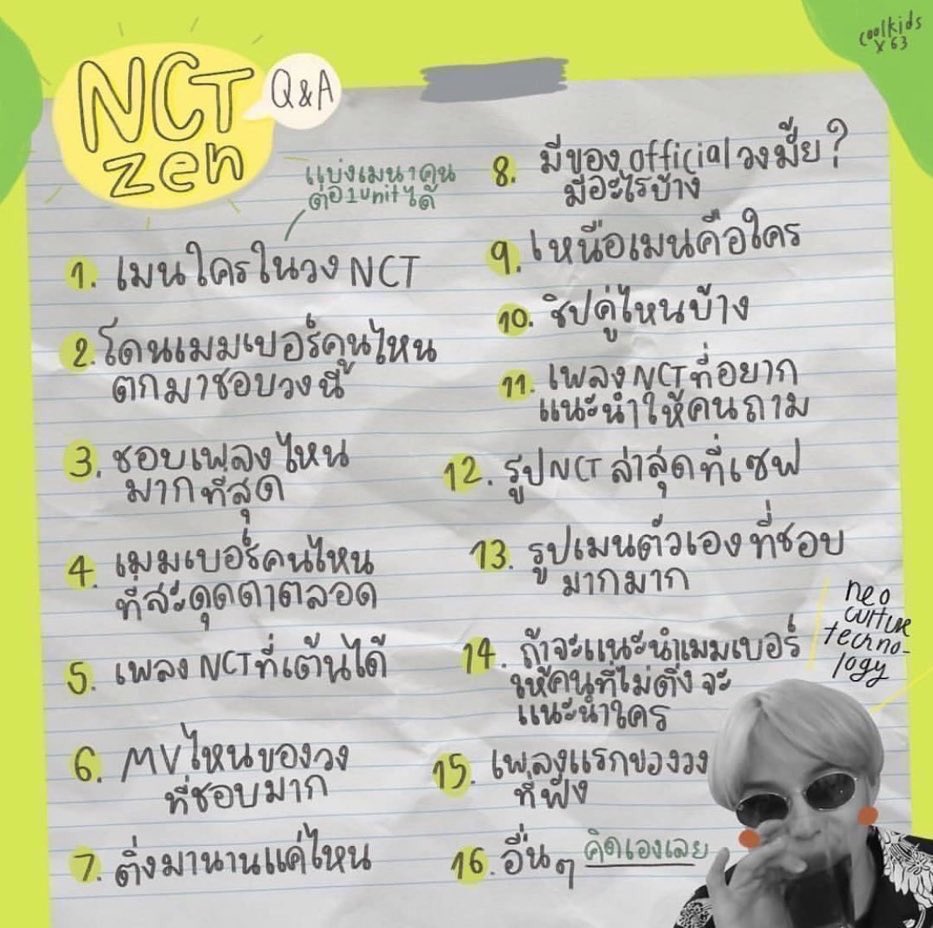 coolkids
x 63
NCT
zen
Q&A
แบ่งเมน 1 คน
ต่อ 1 unit ได้
1. เมนใครในวง NCT
2. โดนเมมเบอร์คนไหน
ตกมาชอบวงนี้
3. ชอบเพลงไหน
มากที่สุด
4. เมมเบอร์คนไหน
ที่สะดุดตาตลอด
5. เพลง NCT ที่เต้นได้
6. MV ไหนของวง
ที่ชอบมาก
7. ติ่งมานานแค่ไหน
8. มีของ official วงมั้ย?
มีอะไรบ้าง
9. เหนือเมนคือใคร
10. ชิปคู่ไหนบ้าง
11. เพลง NCT ที่อยาก
แนะนำให้คนถาม
12. รูป NCT ล่าสุดที่เซฟ
13. รูปเมนตัวเองที่ชอบ
มากมาก
14. ถ้าจะแนะนำเมมเบอร์
ให้คนที่ไม่ติ่ง จะ
แนะนำใคร
15. เพลงแรกของวง
ที่ฟัง
16. อื่นๆ คิดเองเลย
neo
culture
techno-
logy